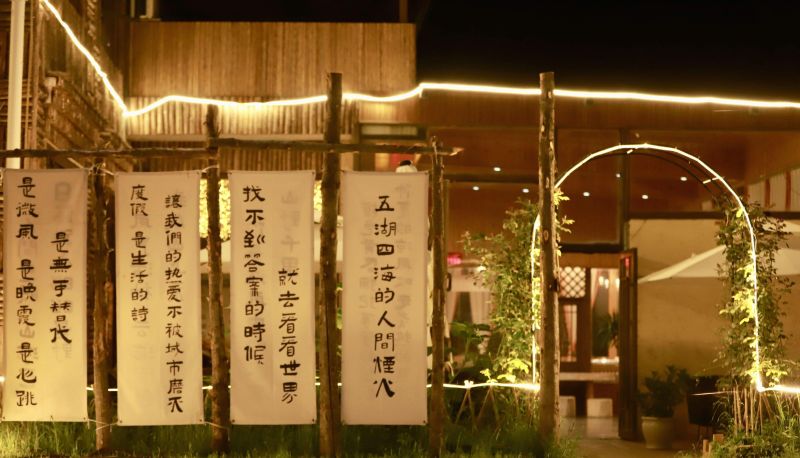 是微风 是晚霞 是心跳
是無可替代
度假 是生活的詩
讓我們的热爱不被城市磨灭
找不到答案的時候
就去看看世界
五湖四海的人間煙火